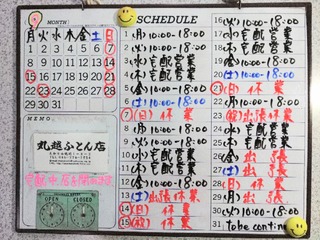 MONTH:
月 火 水 木 金 土 日
1 2 3 4 5 6 7
8 9 10 11 12 13 14
15 16 17 18 19 20 21
22 23 24 25 26 27 28
29 30 31
MEMO
丸越ふとん店
OPEN CLOSED
SCHEDULE
1 (月) 10:00-18:00
2 (火) 10:00-18:00
3 (水) 宅配営業
4 (木) 宅配営業
5 (金) 10:00-18:00
6 (土) 10:00-18:00
7 (日) 休業
8 (月) 10:00-18:00
9 (火) 10:00-18:00
10 (水) 宅配営業
11 (木) 宅配営業
12 (金) 10:00-18:00
13 (土) 出張休業
14 (日) 休業
15 (祝) 休業
16 (火) 10:00-18:00
17 (水) 宅配営業
18 (木) 宅配営業
19 (金) 10:00-18:00
20 (土) 10:00-18:00
21 (日) 休業
22 (月) 10:00-18:00
23 (祝) 出張休業
24 (水) 宅配営業
25 (木) 宅配営業
26 (金) 出張
27 (土) 出張
28 (日) 休業
29 (月) 10:00-18:00
30 (火) 10:00-18:00
31 to be contin